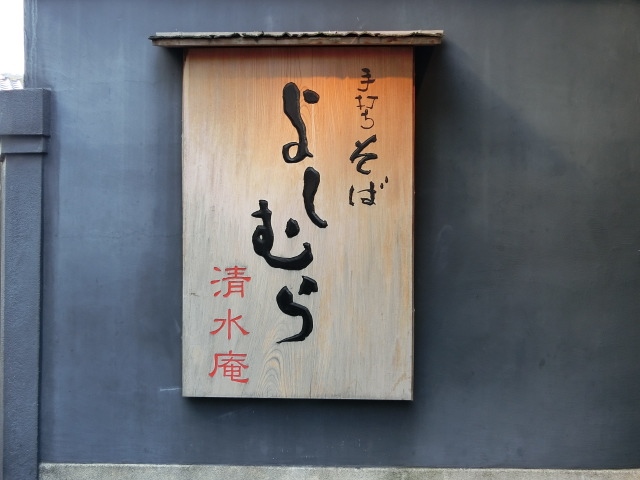 手打ちそば
よしむら
清水庵